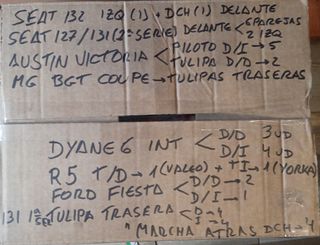 SEAT 132 IZQ (1) + DCH (1) DELANTE
SEAT 127/131 (2ª SERIE) DELANTE < 6 PAREJAS
2 IZQ
AUSTIN VICTORIA < PILOTO D/I → 5
TULIPA D/D → 2
MG BGT COUPE → TULIPAS TRASERAS
DYANE 6 INT < D/D 3 UD
D/I 4 UD
R5 T/D → 1 (VALEO) + TI → 1 (YORKA)
FORD FIESTA < D/D → 2
D/I → 1
131 1ª SER TULIPA TRASERA < D = 4
I = 4
" MARCHA ATRAS DCH → 4